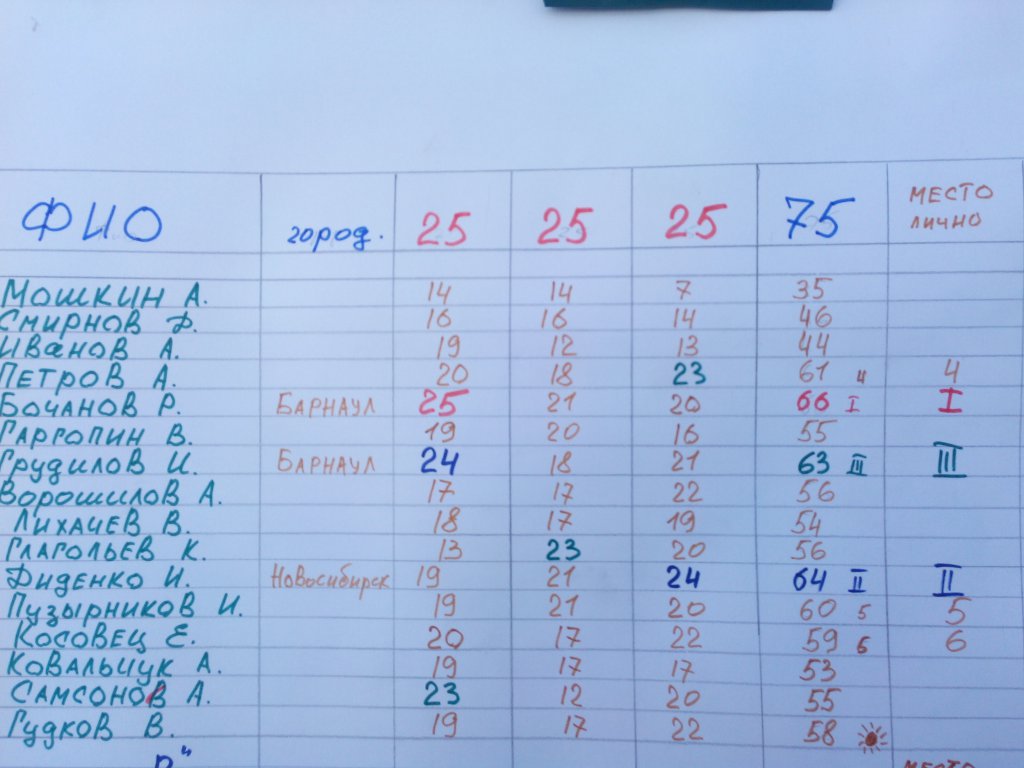 ФИО город. 25 25 25 75 МЕСТО ЛИЧНО
МОШКИН А. 14 14 7 35
СМИРНОВ Ф. 16 16 14 46
ИВАНОВ А. 19 12 13 44
ПЕТРОВ А. 20 18 23 61 4 4
БОЧАНОВ Р. БАРНАУЛ 25 21 20 66 I I
ГАРГОПИН В. 19 20 16 55
ГРУДИЛОВ И. БАРНАУЛ 24 18 21 63 III III
ВОРОШИЛОВ А. 17 17 22 56
ЛИХАЧЕВ В. 18 17 19 54
ГЛАГОЛЬЕВ К. 13 23 20 56
ДИДЕНКО И. НОВОСИБИРСК 19 21 24 64 II II
ПУЗЫРНИКОВ И. 19 21 20 60 5 5
КОСОВЕЦ Е. 20 17 22 59 6 6
КОВАЛЬЧУК А. 19 17 17 53
САМСОНОВ А. 23 12 20 55
ГУДКОВ В. 19 17 22 58
МЕСТО